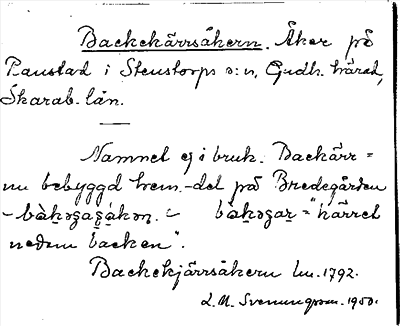 Backekärrsåkern. Åker på
Panstad i Stenstorps s:n, Gudh. härad,
Skarab. län.
Namnet ej i bruk. Backärr =
nu bebyggd hem.-del på Bredegården
= "kärret
nedom backen".
Backekjärrsåkern Lm. 1792.
L. M. Svenungsson. 1950.